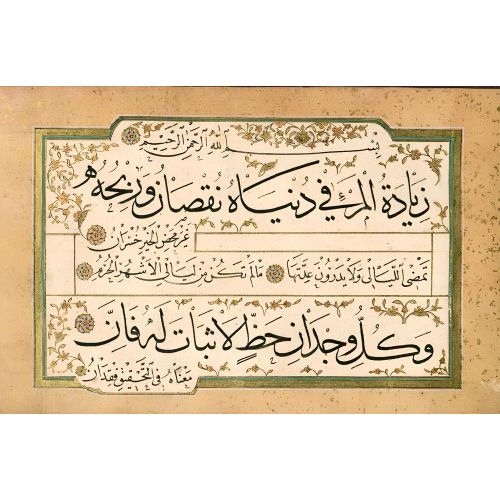 بسم الله الرحمن الرحيم
زيادة المرء في دنياه نقصان وربحه
غير محض الخير خسران
تمضي الليالي ولا يدرون عدتها مالم تكن من ليالي الاشهر الحرم
وكل وجدان حظ لا ثبات له فان
معناه في التحقيق فقدان